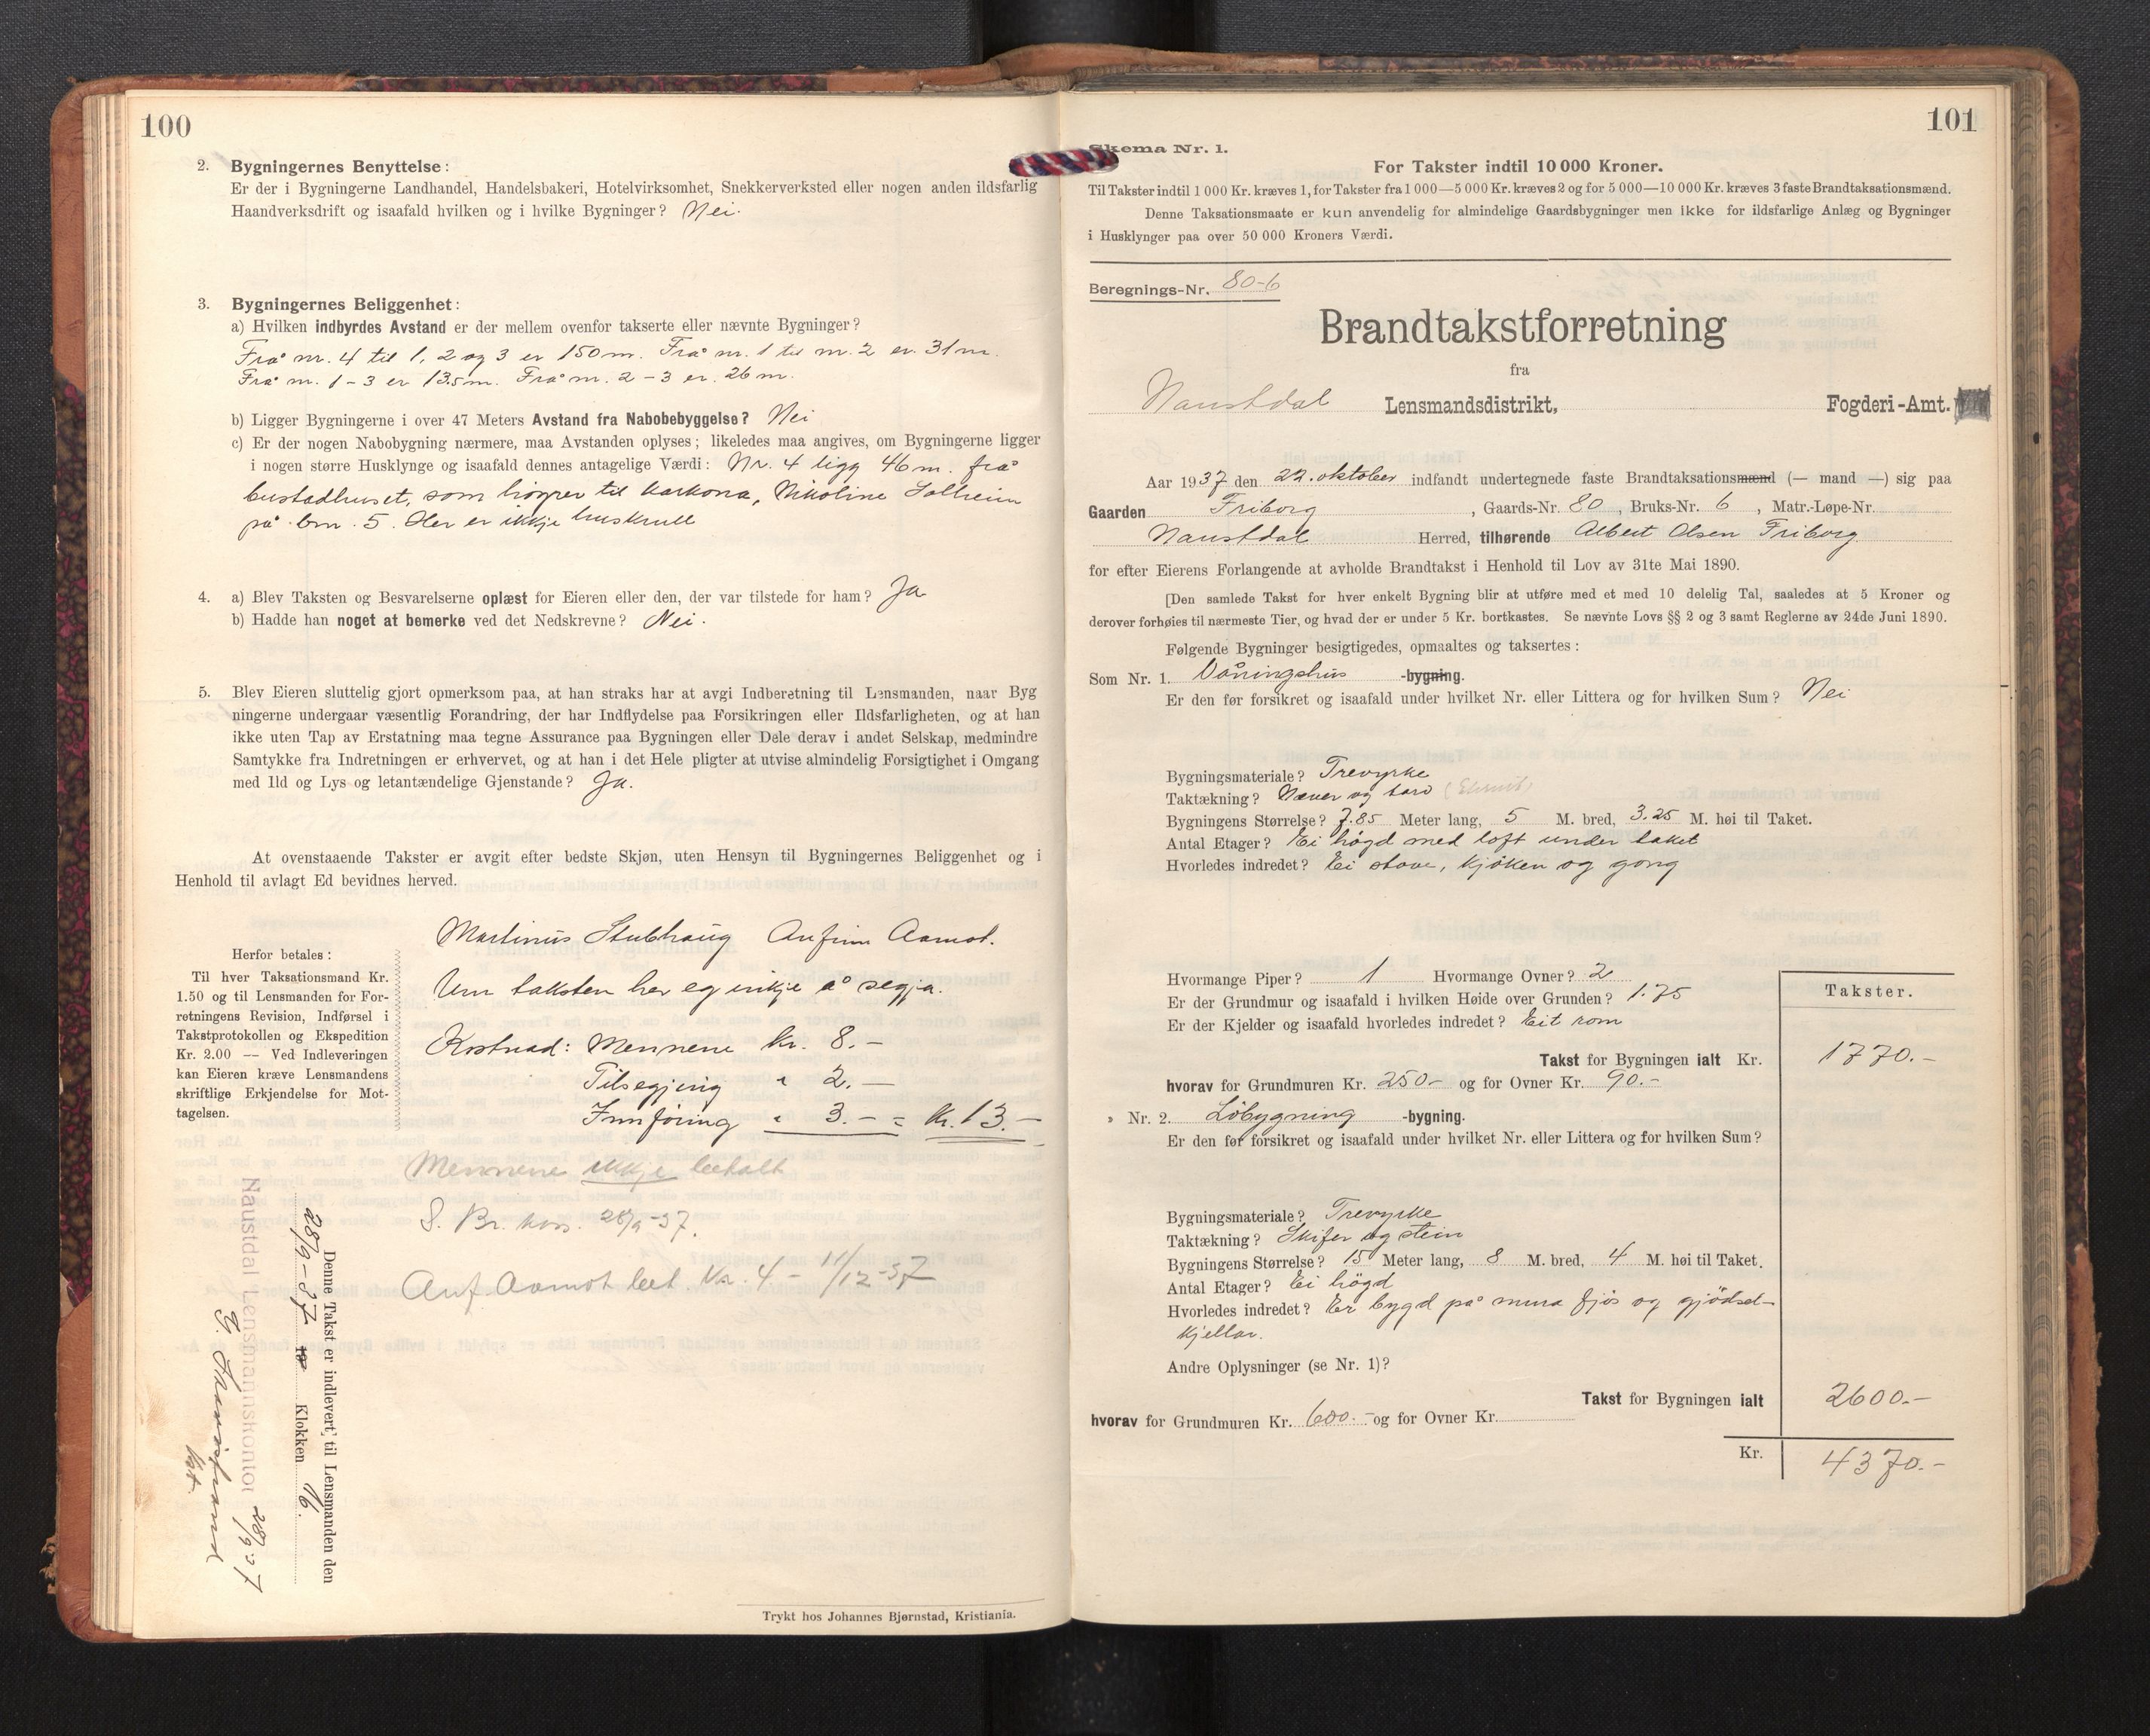 100
2. Bygningernes Benyttelse:
Er der i Bygningerne Landhandel, Handelsbakeri, Hotelvirksomhet, Snekkerverksted eller nogen anden ildsfarlig
Haandverksdrift og isaafald hvilken og i hvilke Bygninger? Nei.
3. Bygningernes Beliggenhet:
a) Hvilken indbyrdes Avstand er der mellem ovenfor takserte eller nævnte Bygninger?
Frå nr. 4 til 1, 2 og 3 er 150 m. Frå nr. 1 til nr. 2 er 31 m.
Frå nr. 1-3 er 13.5 m. Frå nr. 2-3 er 26 m.
b) Ligger Bygningerne i over 47 Meters Avstand fra Nabobebyggelse? Nei
c) Er der nogen Nabobygning nærmere, maa Avstanden oplyses; likeledes maa angives, om Bygningerne ligger
i nogen større Husklynge og isaafald dennes antagelige Værdi: Nr. 4 ligg 46 m. frå
bustadhuset, som høyrer til karkona, Nikoline Solheim
på bnr. 5. Her er ikkje huskrull
4. a) Blev Taksten og Besvarelserne oplæst for Eieren eller den, der var tilstede for ham? Ja
b) Hadde han noget at bemerke ved det Nedskrevne? Nei.
5. Blev Eieren sluttelig gjort opmerksom paa, at han straks har at avgi Indberetning til Lensmanden, naar Byg
ningerne undergaar væsentlig Forandring, der har Indflydelse paa Forsikringen eller Ildsfarligheten, og at han
ikke uten Tap av Erstatning maa tegne Assurance paa Bygningen eller Dele derav i andet Selskap, medmindre
Samtykke fra Indretningen er erhvervet, og at han i det Hele pligter at utvise almindelig Forsigtighet i Omgang
med Ild og Lys og letantændelige Gjenstande? Ja.
At ovenstaaende Takster er avgit efter bedste Skjøn, uten Hensyn til Bygningernes Beliggenhet og i
Henhold til avlagt Ed bevidnes herved.
Martinus Stubhaug Anfinn Aamot.
Um taksten her eg inkje å segja.
Kostnad: Mennene kr. 8.-
Tilsegjing " 2.-
Innføring " 3.- = kr. 13.-
Mennene ikkje betalt
S. Br. kas. 28/9-37.
Anf. Aamot bet. kr. 4 - 11/12-37
Herfor betales:
Til hver Taksationsmand Kr.
1.50 og til Lensmanden for For-
retningens Revision, Indførsel i
Takstprotokollen og Ekspedition
Kr. 2.00 -- Ved Indleveringen
kan Eieren kræve Lensmandens
skriftlige Erkjendelse for Mot-
tagelsen.
Denne Takst er indlevert til Lensmanden den
28/9-37 19 Klokken 16.
Naustdal Lensmannskontor 28/9-37
Trykt hos Johannes Bjørnstad, Kristiania.
101
Skema Nr. 1.
For Takster indtil 10 000 Kroner.
Til Takster indtil 1 000 Kr. kræves 1, for Takster fra 1 000—5 000 Kr. kræves 2 og for 5 000—10 000 Kr. kræves 3 faste Brandtaksationsmænd.
Denne Taksationsmaate er kun anvendelig for almindelige Gaardsbygninger men ikke for ildsfarlige Anlæg og Bygninger
i Husklynger paa over 50 000 Kroners Værdi.
Beregnings-Nr. 80-6
Brandtakstforretning
fra
Naustdal Lensmandsdistrikt, Fogderi-Amt.
Aar 1937 den 22. oktober indfandt undertegnede faste Brandtaksationsmænd (— mand —) sig paa
Gaarden Friborg, Gaards-Nr. 80, Bruks-Nr. 6, Matr.-Løpe-Nr.
Naustdal Herred, tilhørende Albert Olsen Friborg
for efter Eierens Forlangende at avholde Brandtakst i Henhold til Lov av 31te Mai 1890.
[Den samlede Takst for hver enkelt Bygning blir at utføre med et med 10 delelig Tal, saaledes at 5 Kroner og
derover forhøies til nærmeste Tier, og hvad der er under 5 Kr. bortkastes. Se nævnte Lovs §§ 2 og 3 samt Reglerne av 24de Juni 1890.
Følgende Bygninger besigtigedes, opmaaltes og taksertes:
Som Nr. 1. Våningshus -bygning.
Er den før forsikret og isaafald under hvilket Nr. eller Littera og for hvilken Sum? Nei
Bygningsmateriale? Trevyrke
Taktækning? Never og tord (Eternit)
Bygningens Størrelse? 7.85 Meter lang, 5 M. bred, 3.25 M. høi til Taket.
Antal Etager? Ei høgd med loft under taket
Hvorledes indredet? Ei stove, kjøken og gong
Hvormange Piper? 1 Hvormange Ovner? 2
Er der Grundmur og isaafald i hvilken Høide over Grunden? 1.75
Er der Kjelder og isaafald hvorledes indredet? Eit rom
Takster.
Takst for Bygningen ialt Kr. 1770.-
hvorav for Grundmuren Kr. 250- og for Ovner Kr. 90.-
» Nr. 2. Løbygning -bygning.
Er den før forsikret og isaafald under hvilket Nr. eller Littera og for hvilken Sum?
Bygningsmateriale? Trevyrke
Taktækning? Skifer og stein
Bygningens Størrelse? 15 Meter lang, 8 M. bred, 4 M. høi til Taket.
Antal Etager? Ei høgd
Hvorledes indredet? Er bygd på mura fjøs og gjødsel-
kjellar.
Andre Oplysninger (se Nr. 1)?
Takst for Bygningen ialt 2600.-
hvorav for Grundmuren Kr. 600.- og for Ovner Kr.
Kr. 4370.-